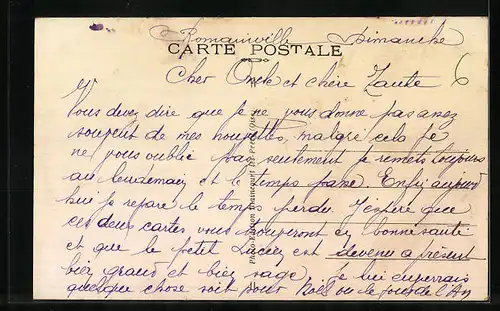 Romainville Dimanche
CARTE POSTALE
Cher Oncle et chère Tante
6
Vous devez dire que je ne vous donne pas assez
souvent de mes nouvelles, malgré cela je
ne vous oublie pas seulement je remets toujours
au lendemain et le temps passe. Enfin aujourd
hui je repare le temps perdu. J'espère que
ces deux cartes vous trouveront en bonne santé
et que le petit Lucien est devenu a présent
bien grand et bien sage. Je lui enverrais
quelque chose soit pour Noël ou le jour de l'An